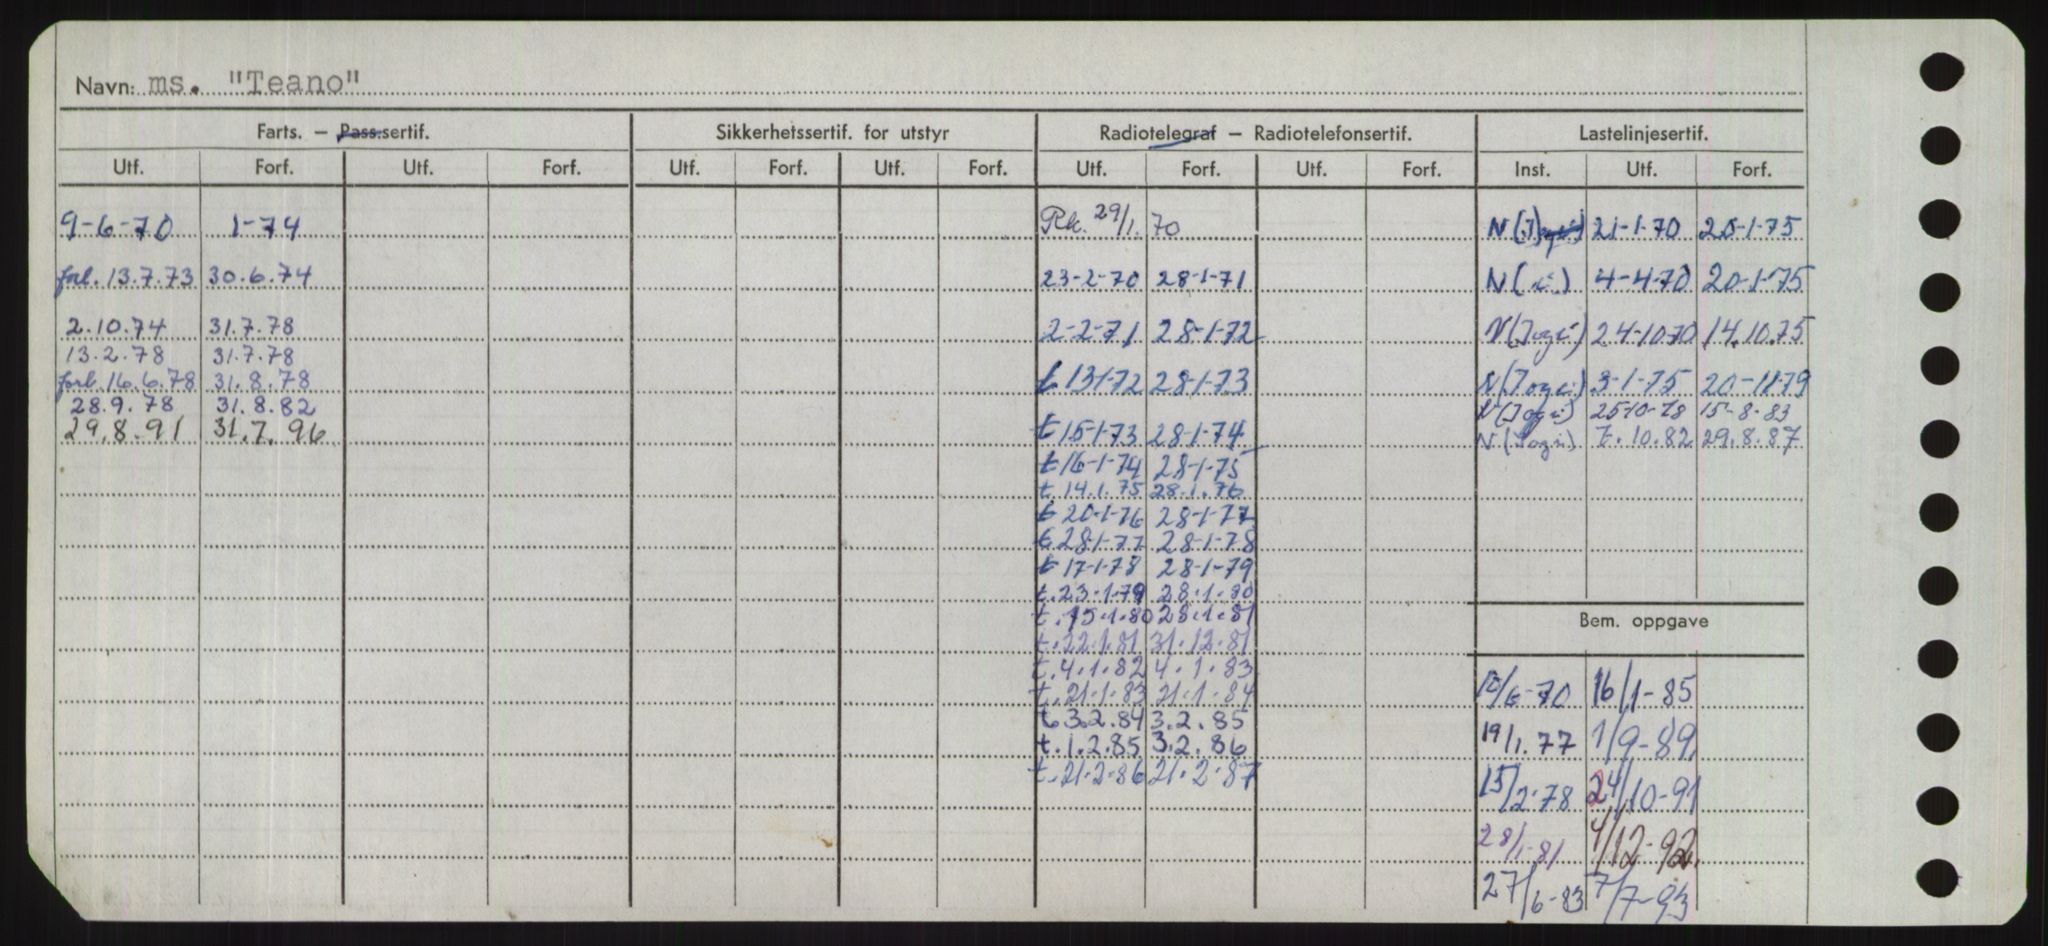 Navn: ms. "Teano"
Farts. — Pass.sertif.
Utf. Forf. Utf. Forf.
9-6-70 1-74
forl. 13.7.73 30.6.74
2.10.74 31.7.78
13.2.78 31.7.78
forl. 16.6.78 31.8.78
28.9.78 31.8.82
29.8.91 31.7.96
Sikkerhetssertif. for utstyr
Utf. Forf. Utf. Forf.
Radiotelegraf — Radiotelefonsertif.
Utf. Forf. Utf. Forf.
Rk. 29/1.70
23-2-70 28-1-71
2-2-71 28-1-72
t 13-1-72 28-1-73
t 15-1-73 28-1-74
t 16-1-74 28-1-75
t. 14.1.75 28.1.76
t 20-1-76 28-1-77
t 28-1-77 28-1-78
t 17-1-78 28-1-79
t. 23.1.79 28.1.80
t. 15.1.80 28.1.81
t. 22.1.81 31.12.81
t. 4.1.82 4.1.83
t. 21.1.83 21.1.84
t. 3.2.84 3.2.85
t. 1.2.85 3.2.86
t. 21.2.86 21.2.87
Lastelinjesertif.
Inst. Utf. Forf.
N (J) 21-1-70 20-1-75
N ( ) 4-4-70 20-1-75
N (Jogi) 24-10-70 14.10.75
N (Jogi) 3-1-75 20-11-79
N (Jogi) 25-10-78 15-8-83
N (Jogi) 7.10.82 29.8.87
Bem. oppgave
/6-70 16/1-85
19/1.77 1/9-89
15/2-78 24/10-91
28/1-81 4/12-92
27/6-83 7/7-93